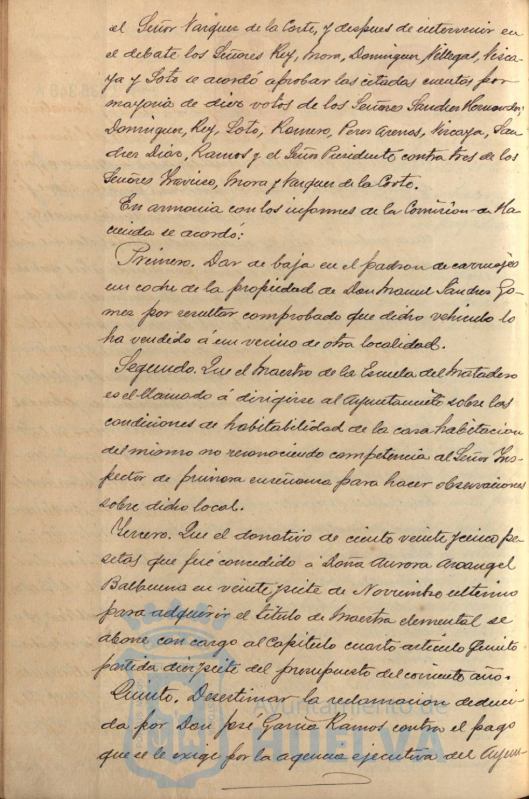 el Señor Vazquez de la Corte, y despues de intervenir en
el debate los Señores Rey, Mora, Dominguez, Villegas, Vizca-
ya y Soto se acordó aprobar las citadas cuentas por
mayoria de diez votos de los Señores Sanchez Hernandez,
Dominguez, Rey, Soto, Romero, Perez Arenas, Vizcaya, San-
chez Diaz, Ramos y el Señor Presidente contra tres de los
Señores Mora y Vazquez de la Corte.
En armonia con los informes de la Comision de Ha-
cienda se acordó:
Primero. Dar de baja en el padron de carruajes
un coche de la propiedad de Don Manuel Sanchez Go-
mez por resultar comprobado que dicho vehiculo lo
ha vendido á un vecino de otra localidad.
Segundo. Que el Maestro de la Escuela del Matadero
es el llamado á dirigirse al Ayuntamiento sobre las
condiciones de habitabilidad de la casa habitacion
del mismo no reconociendo competencia al Señor Ins-
pector de primera enseñanza para hacer observaciones
sobre dicho local.
Tercero. Que el donativo de ciento veinte y cinco pe-
setas que fué concedido á Doña Aurora Arcangel
Balbuena en veinte y siete de Noviembre ultimo
para adquirir el titulo de Maestra elemental se
abone con cargo al Capitulo cuarto articulo Quinto
partida diez y siete del presupuesto del corriente año.
Quinto. Desestimar la reclamacion deduci-
da por Don José Garcia Ramos contra el pago
que se le exige por la agencia ejecutiva del Ayun-
Ayuntamiento de
HUELVA